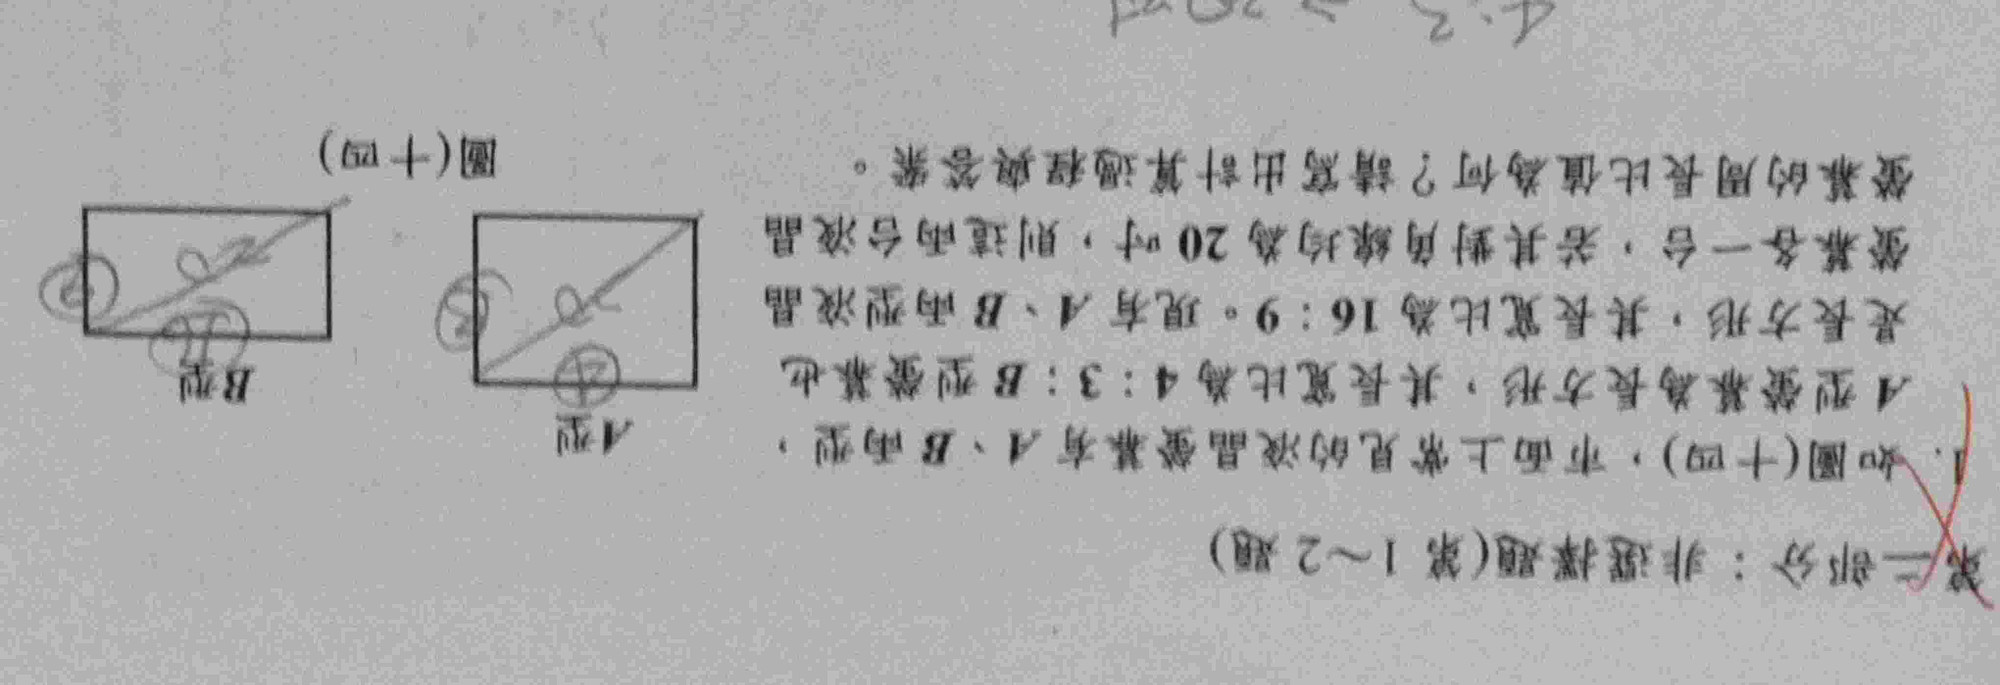 第二部分：非選擇題(第 1～2 題)
1. 如圖(十四)，市面上常見的液晶螢幕有 A、B 兩型，
A 型螢幕為長方形，其長寬比為 4：3；B 型螢幕也
是長方形，其長寬比為 16：9。現有 A、B 兩型液晶
螢幕各一台，若其對角線均為 20 吋，則這兩台液晶
螢幕的周長比值為何？請寫出計算過程與答案。
A型
B型
圖(十四)
4
4:3